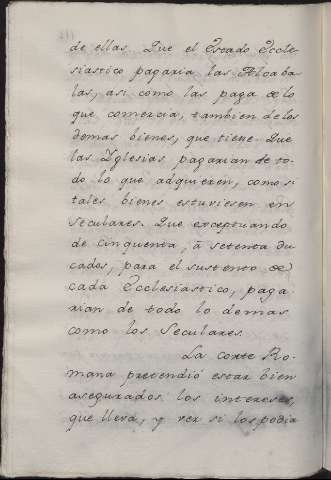 de ellas. Que el Estado Eccle-
siastico pagaria las Alcaba-
las, asi como las paga de lo
que comercia, tambien de los
demas bienes, que tiene. Que
las Yglesias pagarian de to-
do lo que adquieren, como si
tales bienes estuviesen en
Seculares. Que exceptuando
de cinquenta, â setenta du
cados, para el sustento de
cada Ecclesiastico, paga
rian de todo lo demas
como los Seculares.
La corte Ro-
mana pretendió estar bien
asegurados los intereses,
que lleva, y ver si los podia